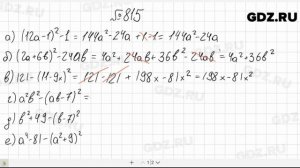 GDZ.RU
№ 815
а) (12a-1)²-1 = 144a²-24a+1-1 = 144a²-24a
б) (2a+6b)²-24ab = 4a²+24ab+36b²-24ab = 4a²+36b²
в) 121-(11-9x)² = 121-121+198x-81x² = 198x-81x²
г) a²b²-(ab-7)² =
д) b²+49-(b-7)²
е) a⁴-81-(a²+9)²
GDZ.RU